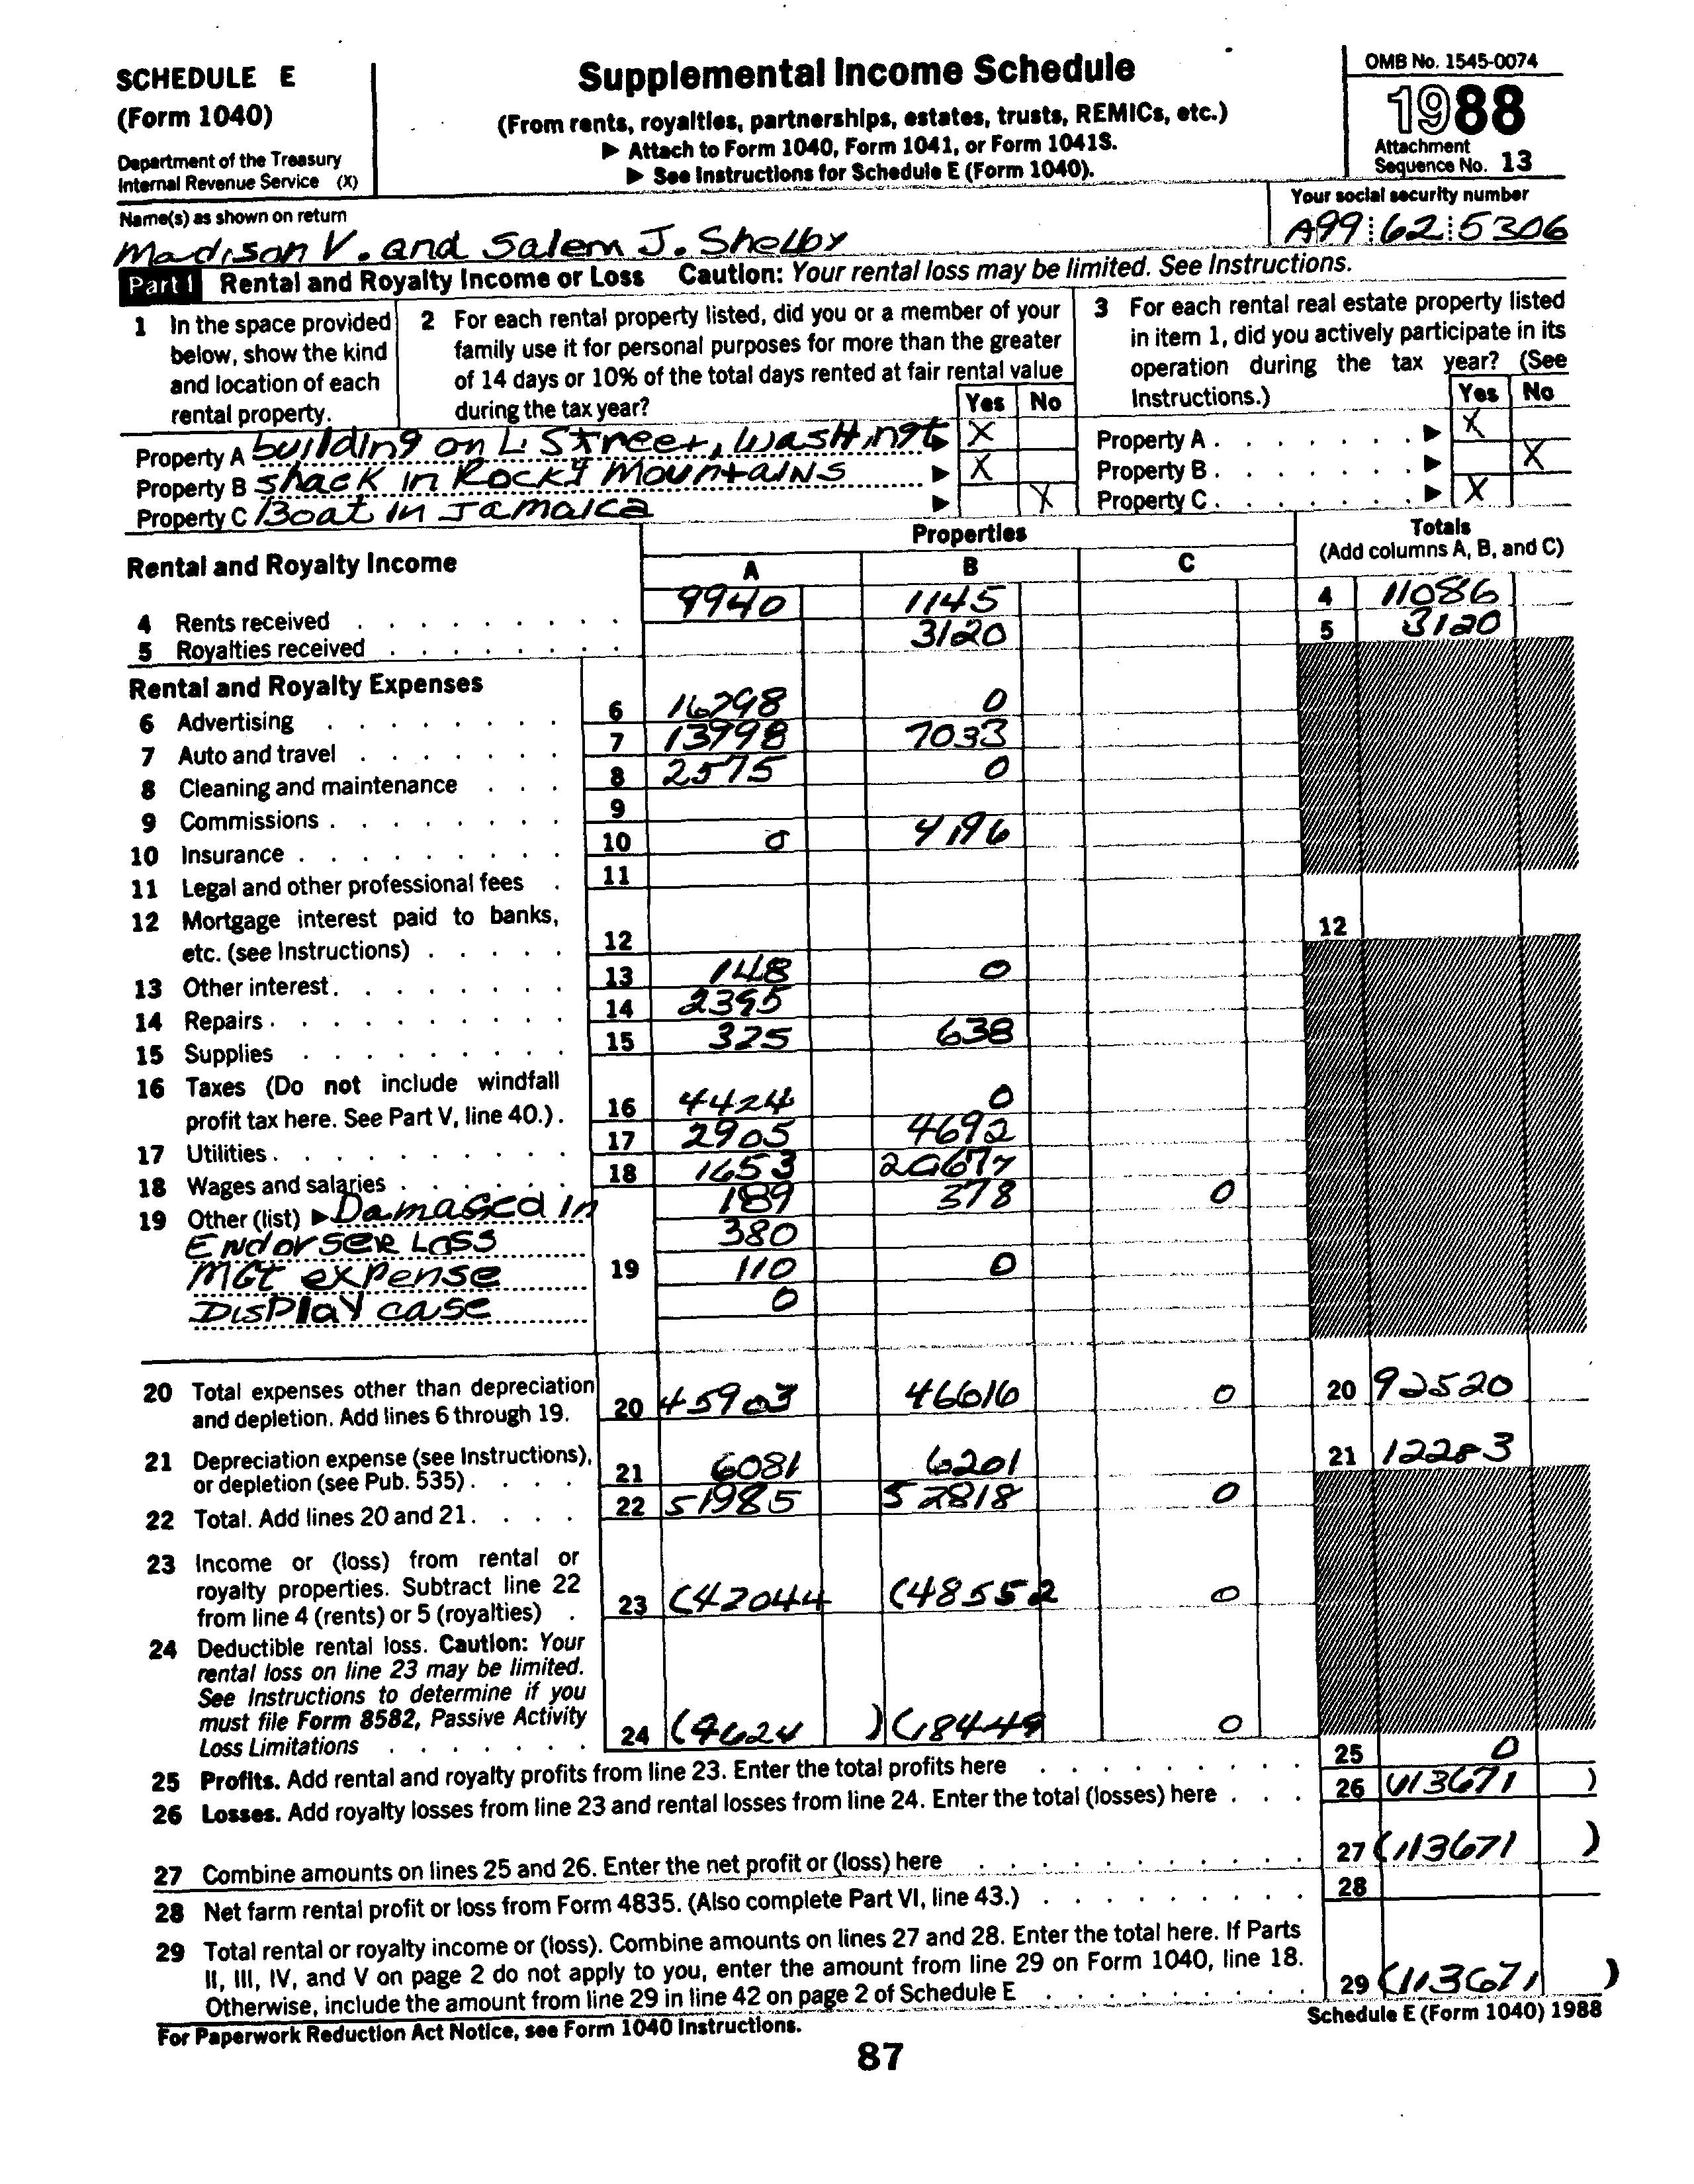 SCHEDULE E
(Form 1040)
Department of the Treasury
Internal Revenue Service (X)
Supplemental Income Schedule
(From rents, royalties, partnerships, estates, trusts, REMICs, etc.)
▶ Attach to Form 1040, Form 1041, or Form 1041S.
▶ See Instructions for Schedule E (Form 1040).
OMB No. 1545-0074
1988
Attachment
Sequence No. 13
Name(s) as shown on return
Your social security number
Madison V. and Salem J. Shelby
A99 62 5306
Part I Rental and Royalty Income or Loss Caution: Your rental loss may be limited. See Instructions.
1 In the space provided
below, show the kind
and location of each
rental property.
2 For each rental property listed, did you or a member of your
family use it for personal purposes for more than the greater
of 14 days or 10% of the total days rented at fair rental value
during the tax year? Yes No
3 For each rental real estate property listed
in item 1, did you actively participate in its
operation during the tax year? (See
Instructions.) Yes No
Property A building on L Street, Washingt ▶ X
Property A ▶ X
Property B shack in Rocky Mountains ▶ X
Property B ▶ X
Property C Boat in Jamaica ▶ X
Property C ▶ X
Properties
Totals
(Add columns A, B, and C)
Rental and Royalty Income
A B C
4 Rents received 9940 1145 4 11086
5 Royalties received 3120 5 3120
Rental and Royalty Expenses
6 Advertising 6 16298 0
7 Auto and travel 7 13998 7033
8 Cleaning and maintenance 8 2575 0
9 Commissions 9
10 Insurance 10 0 4196
11 Legal and other professional fees 11
12 Mortgage interest paid to banks,
etc. (see Instructions) 12 12
13 Other interest 13 148 0
14 Repairs 14 2395
15 Supplies 15 325 638
16 Taxes (Do not include windfall
profit tax here. See Part V, line 40.) 16 4424 0
17 Utilities 17 2905 4692
18 Wages and salaries 18 1653
19 Other (list) ▶ Damaged in 189 378 0
Endorser Loss 380
MGt expense 19 110 0
Display case 0
20 Total expenses other than depreciation
and depletion. Add lines 6 through 19. 20 45903 46616 0 20 92520
21 Depreciation expense (see Instructions),
or depletion (see Pub. 535) 21 6081 6201 21 12283
22 Total. Add lines 20 and 21. 22 51985 52818 0
23 Income or (loss) from rental or
royalty properties. Subtract line 22
from line 4 (rents) or 5 (royalties) 23 (42044 (48552 0
24 Deductible rental loss. Caution: Your
rental loss on line 23 may be limited.
See Instructions to determine if you
must file Form 8582, Passive Activity
Loss Limitations 24 (9624 ) (18449 0
25 Profits. Add rental and royalty profits from line 23. Enter the total profits here 25 0
26 Losses. Add royalty losses from line 23 and rental losses from line 24. Enter the total (losses) here 26 (113671 )
27 Combine amounts on lines 25 and 26. Enter the net profit or (loss) here 27 (113671 )
28 Net farm rental profit or loss from Form 4835. (Also complete Part VI, line 43.) 28
29 Total rental or royalty income or (loss). Combine amounts on lines 27 and 28. Enter the total here. If Parts
II, III, IV, and V on page 2 do not apply to you, enter the amount from line 29 on Form 1040, line 18.
Otherwise, include the amount from line 29 in line 42 on page 2 of Schedule E 29 (113671 )
For Paperwork Reduction Act Notice, see Form 1040 Instructions.
Schedule E (Form 1040) 1988
87